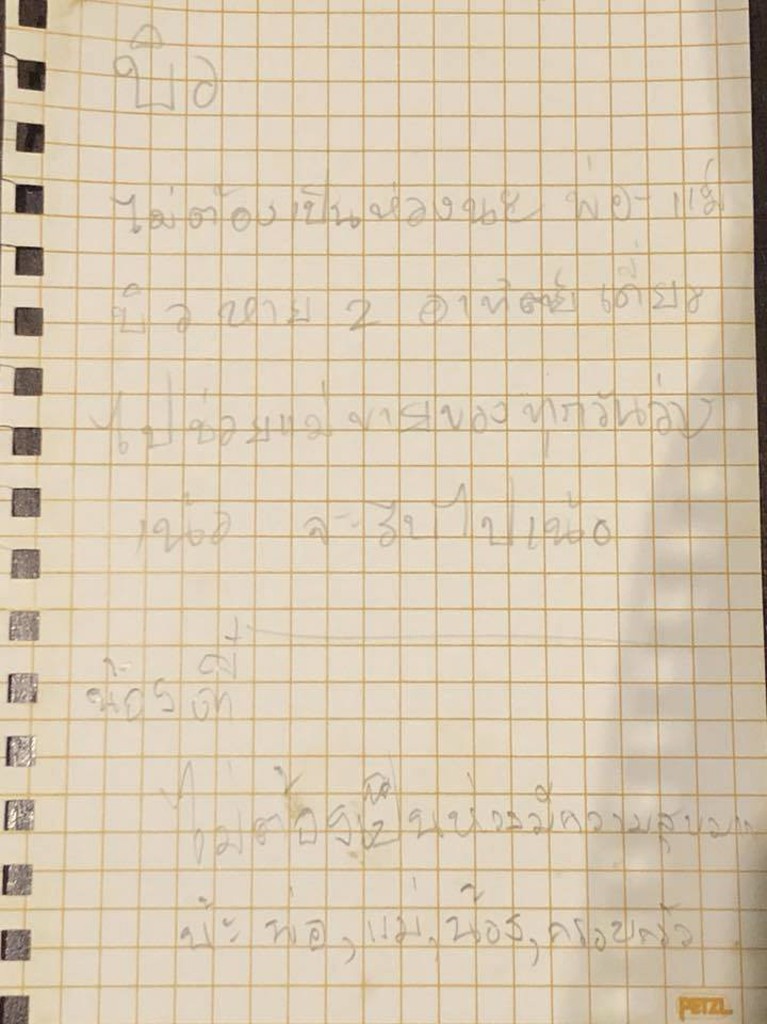 บิว
ไม่ต้องเป็นห่วงนะ พ่อ แม่
บิว หาย 2 อาทิตย์ เดี๋ยว
ไปช่วยแม่ ขายของทุกวัน
จะรีบไป
น้อง
ไม่ต้องเป็นห่วงมีความสุข
พ่อ, แม่, น้อง, ครอบครัว
PETZL